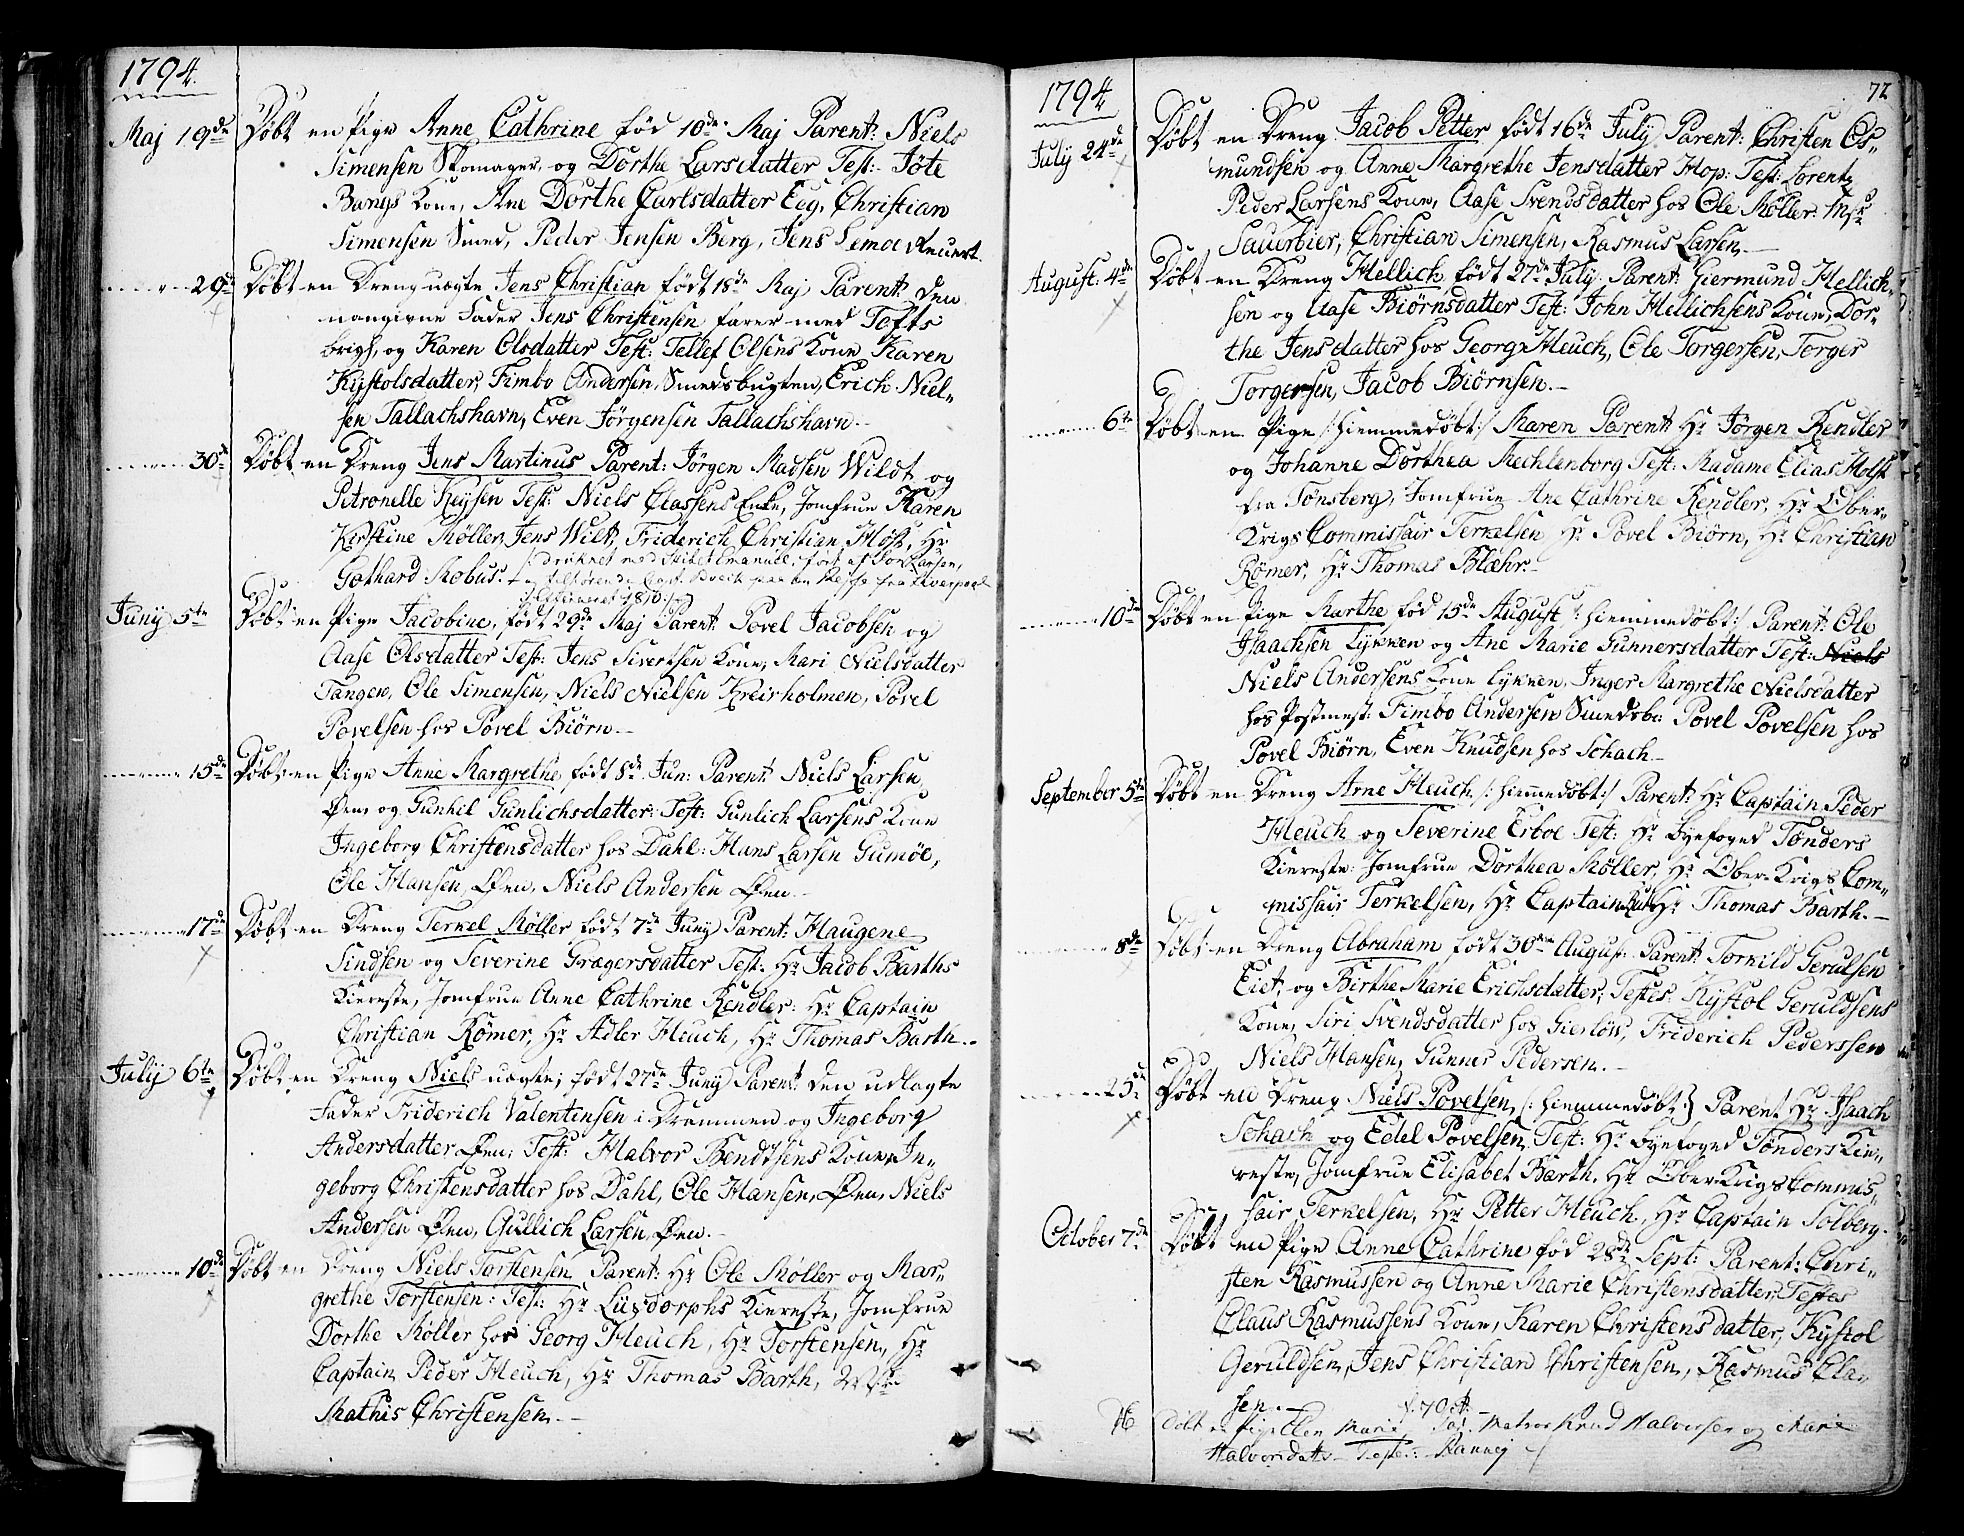 1794.
Maj 19de Døbt en Pige Anne Cathrine fød 10de Maj Parent: Niels
Simensen Skomager, og Dorthe Larsdatter Test: Jöte
Bangs Kone, Ane Dorthe Carlsdatter Eeg, Christian
Simensen Smed, Peder Jensen Berg, Jens Lemoe
29de Døbt en Dreng uægte Jens Christian født 18de Maj Parent: den
angivne Fader Jens Christensen farer med Tofts
brigh, og Karen Olsdatter Test: Tellef Olsens Kone Karen
Kystolsdatter, Fimbo Andersen, Smedsbugten, Erich Niel-
sen Tallachshavn, Even Jörgensen Tallachshavn.
30te Døbt en Dreng Jens Martinus Parent: Jörgen Madsen Wildt og
Petronelle Keysen Test: Niels Classens Enke, Jomfrue Karen
Kirstine Møller, Jens Wilt, Friderich Christian Holst, Hr
Gothard Mobus.
druknet med Skibet Emanuel, ført af
Juny 5te Døbt en Pige Jacobine, født 29de Maj Parent: Povel Jacobsen og
Aase Olsdatter Test: Jens Sivertsen Kone, Mari Nielsdatter
Tangen, Ole Simensen, Niels Nielsen Kreirholmen, Povel
Povelsen hos Povel Biörn.
15de Døbt en Pige Anne Margrethe, født 8de Jun: Parent: Niels Larsen
Øen, og Gunhil Gunlichsdatter: Test: Gunlich Larsens Kone
Ingeborg Christensdatter hos Dahl: Hans Larsen Gumöe,
Ole Hansen, Øen, Niels Andersen Øen.
17de Døbt en Dreng Terkel Møller født 7de Juny Parent: Haugene
Sindsen og Severine Grægersdatter Test: Hr Jacob Barths
Kiereste, Jomfrue Anne Cathrine Kendler: Hr Captain
Christian Römer, Hr Adler Heuch, Hr Thomas Barth.
July 6te Døbt en Dreng Niels uægte; født 27de Juny Parent: den udlagte
Fader Friderich Valentinsen i Drammen og Ingeborg
Andersdatter Øen; Test: Halvor Bendtsens Kone, In-
geborg Christensdatter hos Dahl, Ole Hansen, Øen, Niels
Andersen Øen, Gullich Larsen, Øen.
10de Døbt en Dreng Niels Torstensen Parent: Hr Ole Møller og Mar-
grethe Torstensen: Test: Hr Luxdorphs Kiereste, Jomfrue
Dorthe Møller hos Georg Heuch, Hr Torstensen, Hr
Captain Peder Heuch, Hr Thomas Barth,
Mathis Christensen.
72
1794
July 24de Døbt en Dreng Jacob Petter født 16de July Parent: Christen Os-
mundsen og Anne Margrethe Jensdatter Hop: Test: Lorentz
Peder Larsens Kone, Aase Svendsdatter hos Ole Møller: Msr
Sauerbier, Christian Simensen, Rasmus Larsen
August: 4de Døbt en Dreng Hellich, født 27de July Parent: Giermund Hellich-
sen og Aase Biörnsdatter Test: John Hellichsens Kone, Dor-
the Jensdatter hos Georg Heuch, Ole Torgersen, Torger
Torgersen, Jacob Biörnsen.
6te Døbt en Pige /:hiemmedøbt:/ Maren Parent: Hr Jörgen Kendler
og Johanne Dorthea Mechlenborg Test: Madame Elias Holst
fra Tønsberg, Jomfrue Ane Cathrine Kendler, Hr Ober-
Krigs Commissair Terkelsen, Hr Povel Biörn, Hr Christian
Römer, Hr Thomas Blæhr.
10de Døbt en Pige Marthe fød 15de August /:hiemmedøbt:/ Parent: Ole
Isaachsen Lykken og Ane Marie Gunnersdatter Test: Niels
Niels Andersens Kone Lykken, Inger Margrethe Nielsdatter
hos Postmest: Fimbo Andersen Smedsb: Povel Povelsen hos
Povel Biörn, Even Knudsen hos Schach
September 5te Døbt en Dreng Arne Heuch /:hiemmedøbt:/ Parent: Hr Captain Peder
Heuch og Severine Erboe Test: Hr Byefoged Tönders
Kiereste: Jomfrue Dorthea Møller, Hr Ober-Krigs Com-
missair Terkelsen, Hr Captain Hr Thomas Barth.
8de Døbt en Dreng Abraham født 30te August: Parent: Torkild Gerulsen
Eiet, og Birthe Marie Erichsdatter, Testes: Kystol Geruldsens
Kone, Siri Svendsdatter hos Gierlöw, Friderich Pederssen
Niels Hansen, Gunner Pedersen.
25de Døbt en Dreng Niels Povelsen, /:hiemmedøbt:/ Parent: Hr Isaach
Schach og Edel Povelsen, Test: Hr Byefoged Tönders Kie-
reste, Jomfrue Elisabet Barth, Hr Ober Krigs Commis-
sair Terkelsen, Hr Petter Heuch, Hr Captain Solberg.
October 7de Døbt en Pige Anne Cathrine, fød 28de Sept: Parent: Chri-
sten Rasmussen og Anne Marie Christensdatter, Testes
Claus Rasmussens Kone, Karen Christensdatter, Kystol
Geruldsen, Jens Christian Christensen, Rasmus Cla-
sen.
Døbt en Pige Ellen Marie, Knud Halvorsen og Marie
Halvorsdatter Testes: Ranney